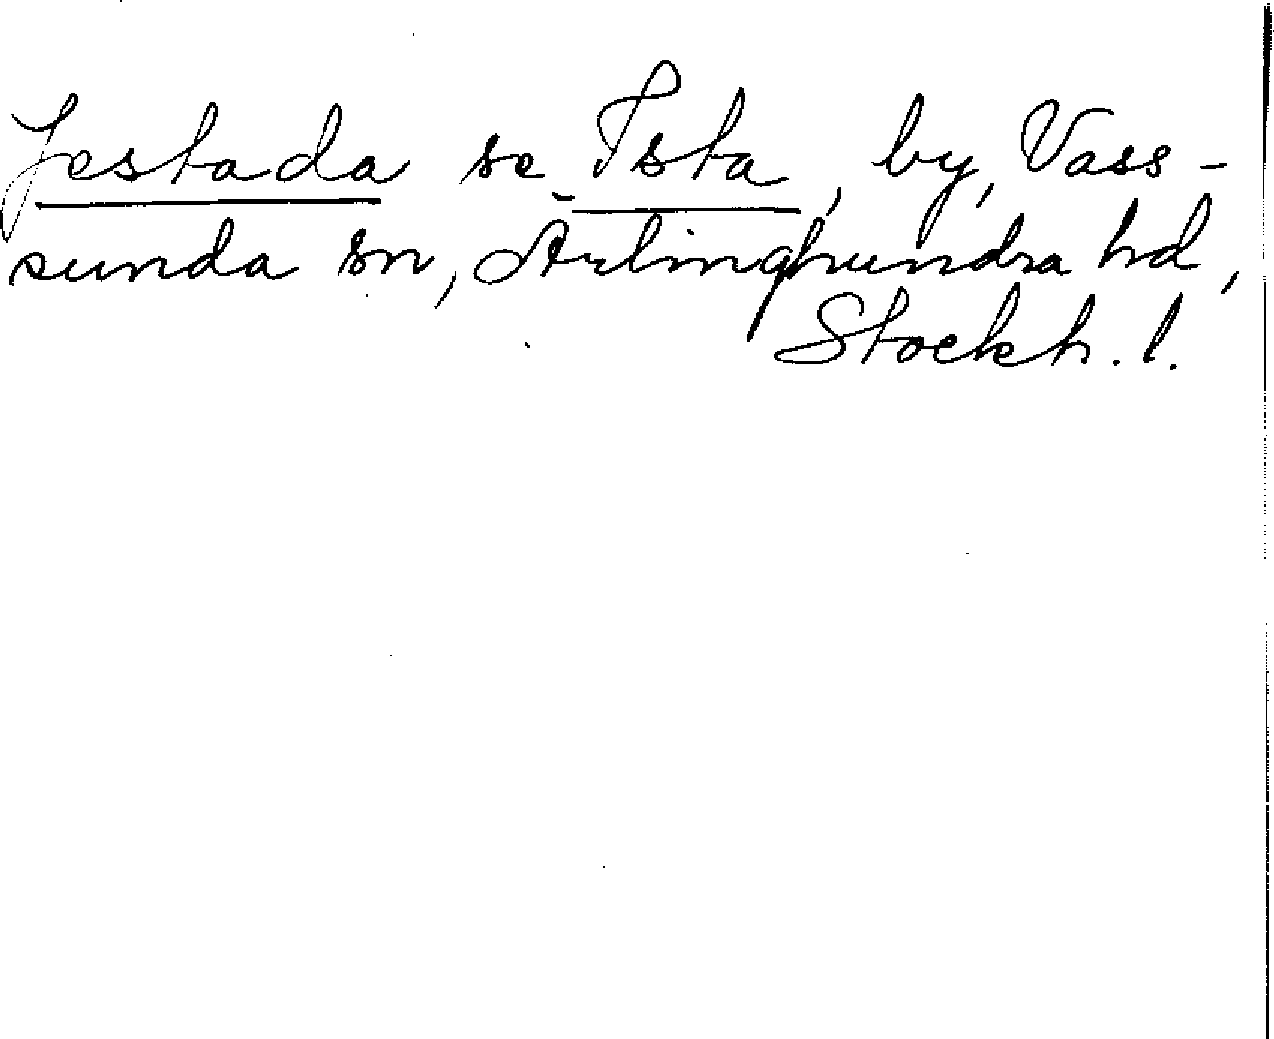 Jestada se Ista, by, Vass-
sunda sn, Ärlinghundra hd,
Stockh. l.